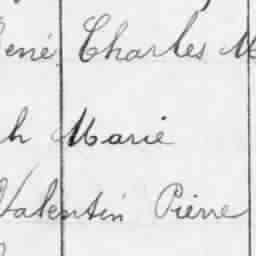 ené Charles M
h Marie
Valentin Pierre